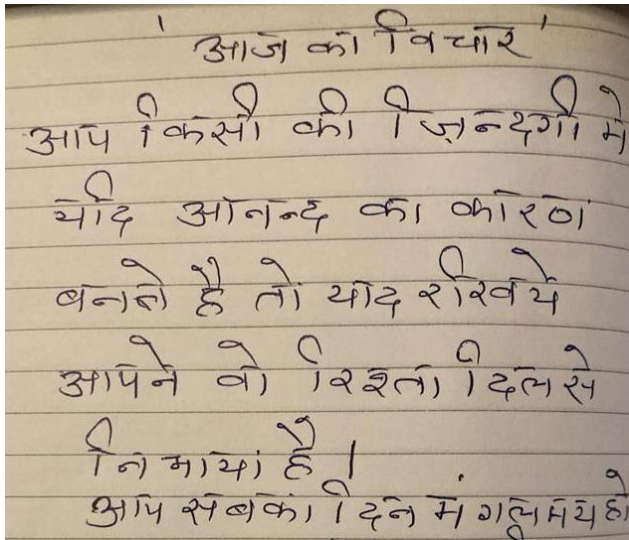 'आज का विचार'
आप किसी की ज़िन्दगी मे
यदि आनन्द का कारण
बनते है तो याद रखिये
आपने वो रिश्ता दिल से
निभाया है।
आप सबका दिन मंगलमय हो